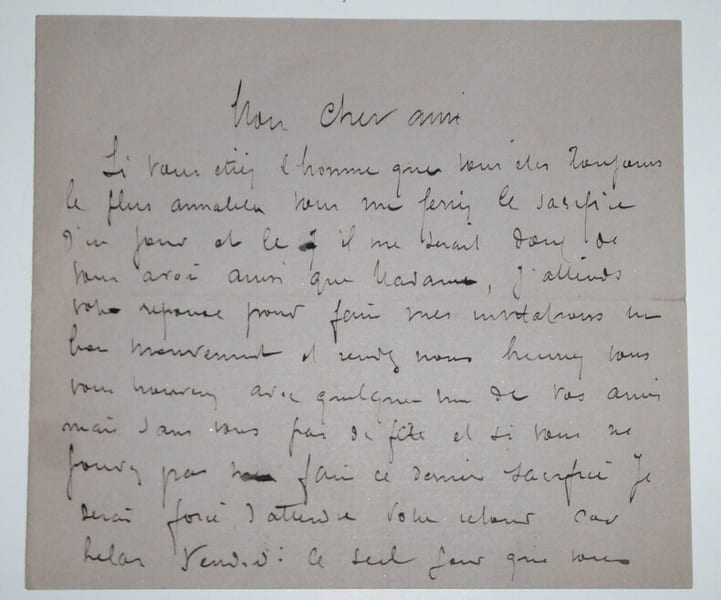 Mon cher ami
Si vous etiez l homme que vous etes Toujours
le plus aimable vous me feriez le sacrifice
d'un jour et le 7 il me serait doux de
vous avoir ainsi que Madame, J'attends
votre reponse pour faire mes invitations un
bon mouvement et rendez nous heureux vous
vous trouverez avec quelques un de vos amis
mais sans vous pas de fête et si vous ne
pouvez pas me faire ce dernier sacrifice Je
serai forcé d'attendre votre retour car
helas Vendredi: le seul jour que vous